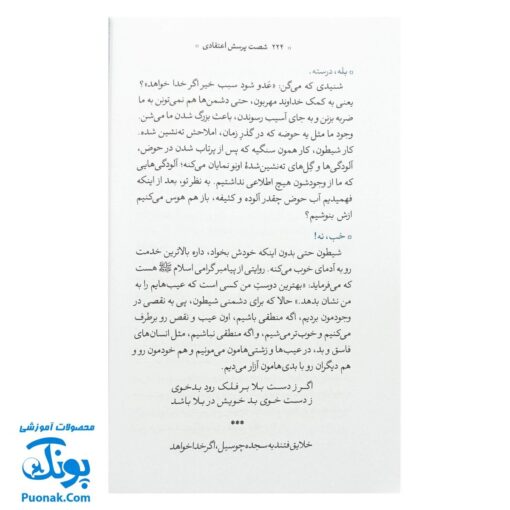 » ۲۲۴ شصت پرسش اعتقادی «
» بله، درسته.
شنیدی که می‌گن: «عَدو شود سبب خیر اگر خدا خواهد»؟
یعنی به کمک خداوند مهربون، حتی دشمن‌ها هم نمی‌تونن به ما
ضربه بزنن و به جای آسیب رسوندن، باعث بزرگ شدن ما می‌شن.
وجود ما مثل یه حوضه که در گذرِ زمان، املاحش ته‌نشین شده.
کار شیطون، کار همون سنگیه که پس از پرتاب شدن در حوض،
آلودگی‌ها و گِل‌های ته‌نشین‌شدهٔ اونو نمایان می‌کنه؛ آلودگی‌هایی
که ما از وجودشون هیچ اطلاعی نداشتیم. به نظر تو، بعد از اینکه
فهمیدیم آب حوض چقدر آلوده و کثیفه، باز هم هوس می‌کنیم
ازش بنوشیم؟
» خب، نه!
شیطون حتی بدون اینکه خودش بخواد، داره بالاترین خدمت
رو به آدمای خوب می‌کنه. روایتی از پیامبر گرامی اسلام ﷺ هست
که می‌فرماید: «بهترین دوستِ من کسی است که عیب‌هایم را به
من نشان بدهد.» حالا که برای دشمنی شیطون، پی به نقصی در
وجودمون بردیم، اگه منطقی باشیم، اون عیب و نقص رو برطرف
می‌کنیم و خوب‌تر می‌شیم، و اگه منطقی نباشیم، مثل انسان‌های
فاسق و بد، در عیب‌ها و زشتی‌هامون می‌مونیم و هم خودمون رو و
هم دیگران رو با بدی‌هامون آزار می‌دیم.
اگر ز دست بلا بر فلک رود بدخوی
ز دست خوی بد خویش در بلا باشد
***
خلایق فتند به سجده چو سیل، اگر خدا خواهد
محصولات آموزشی
پونک
Puonak.Com